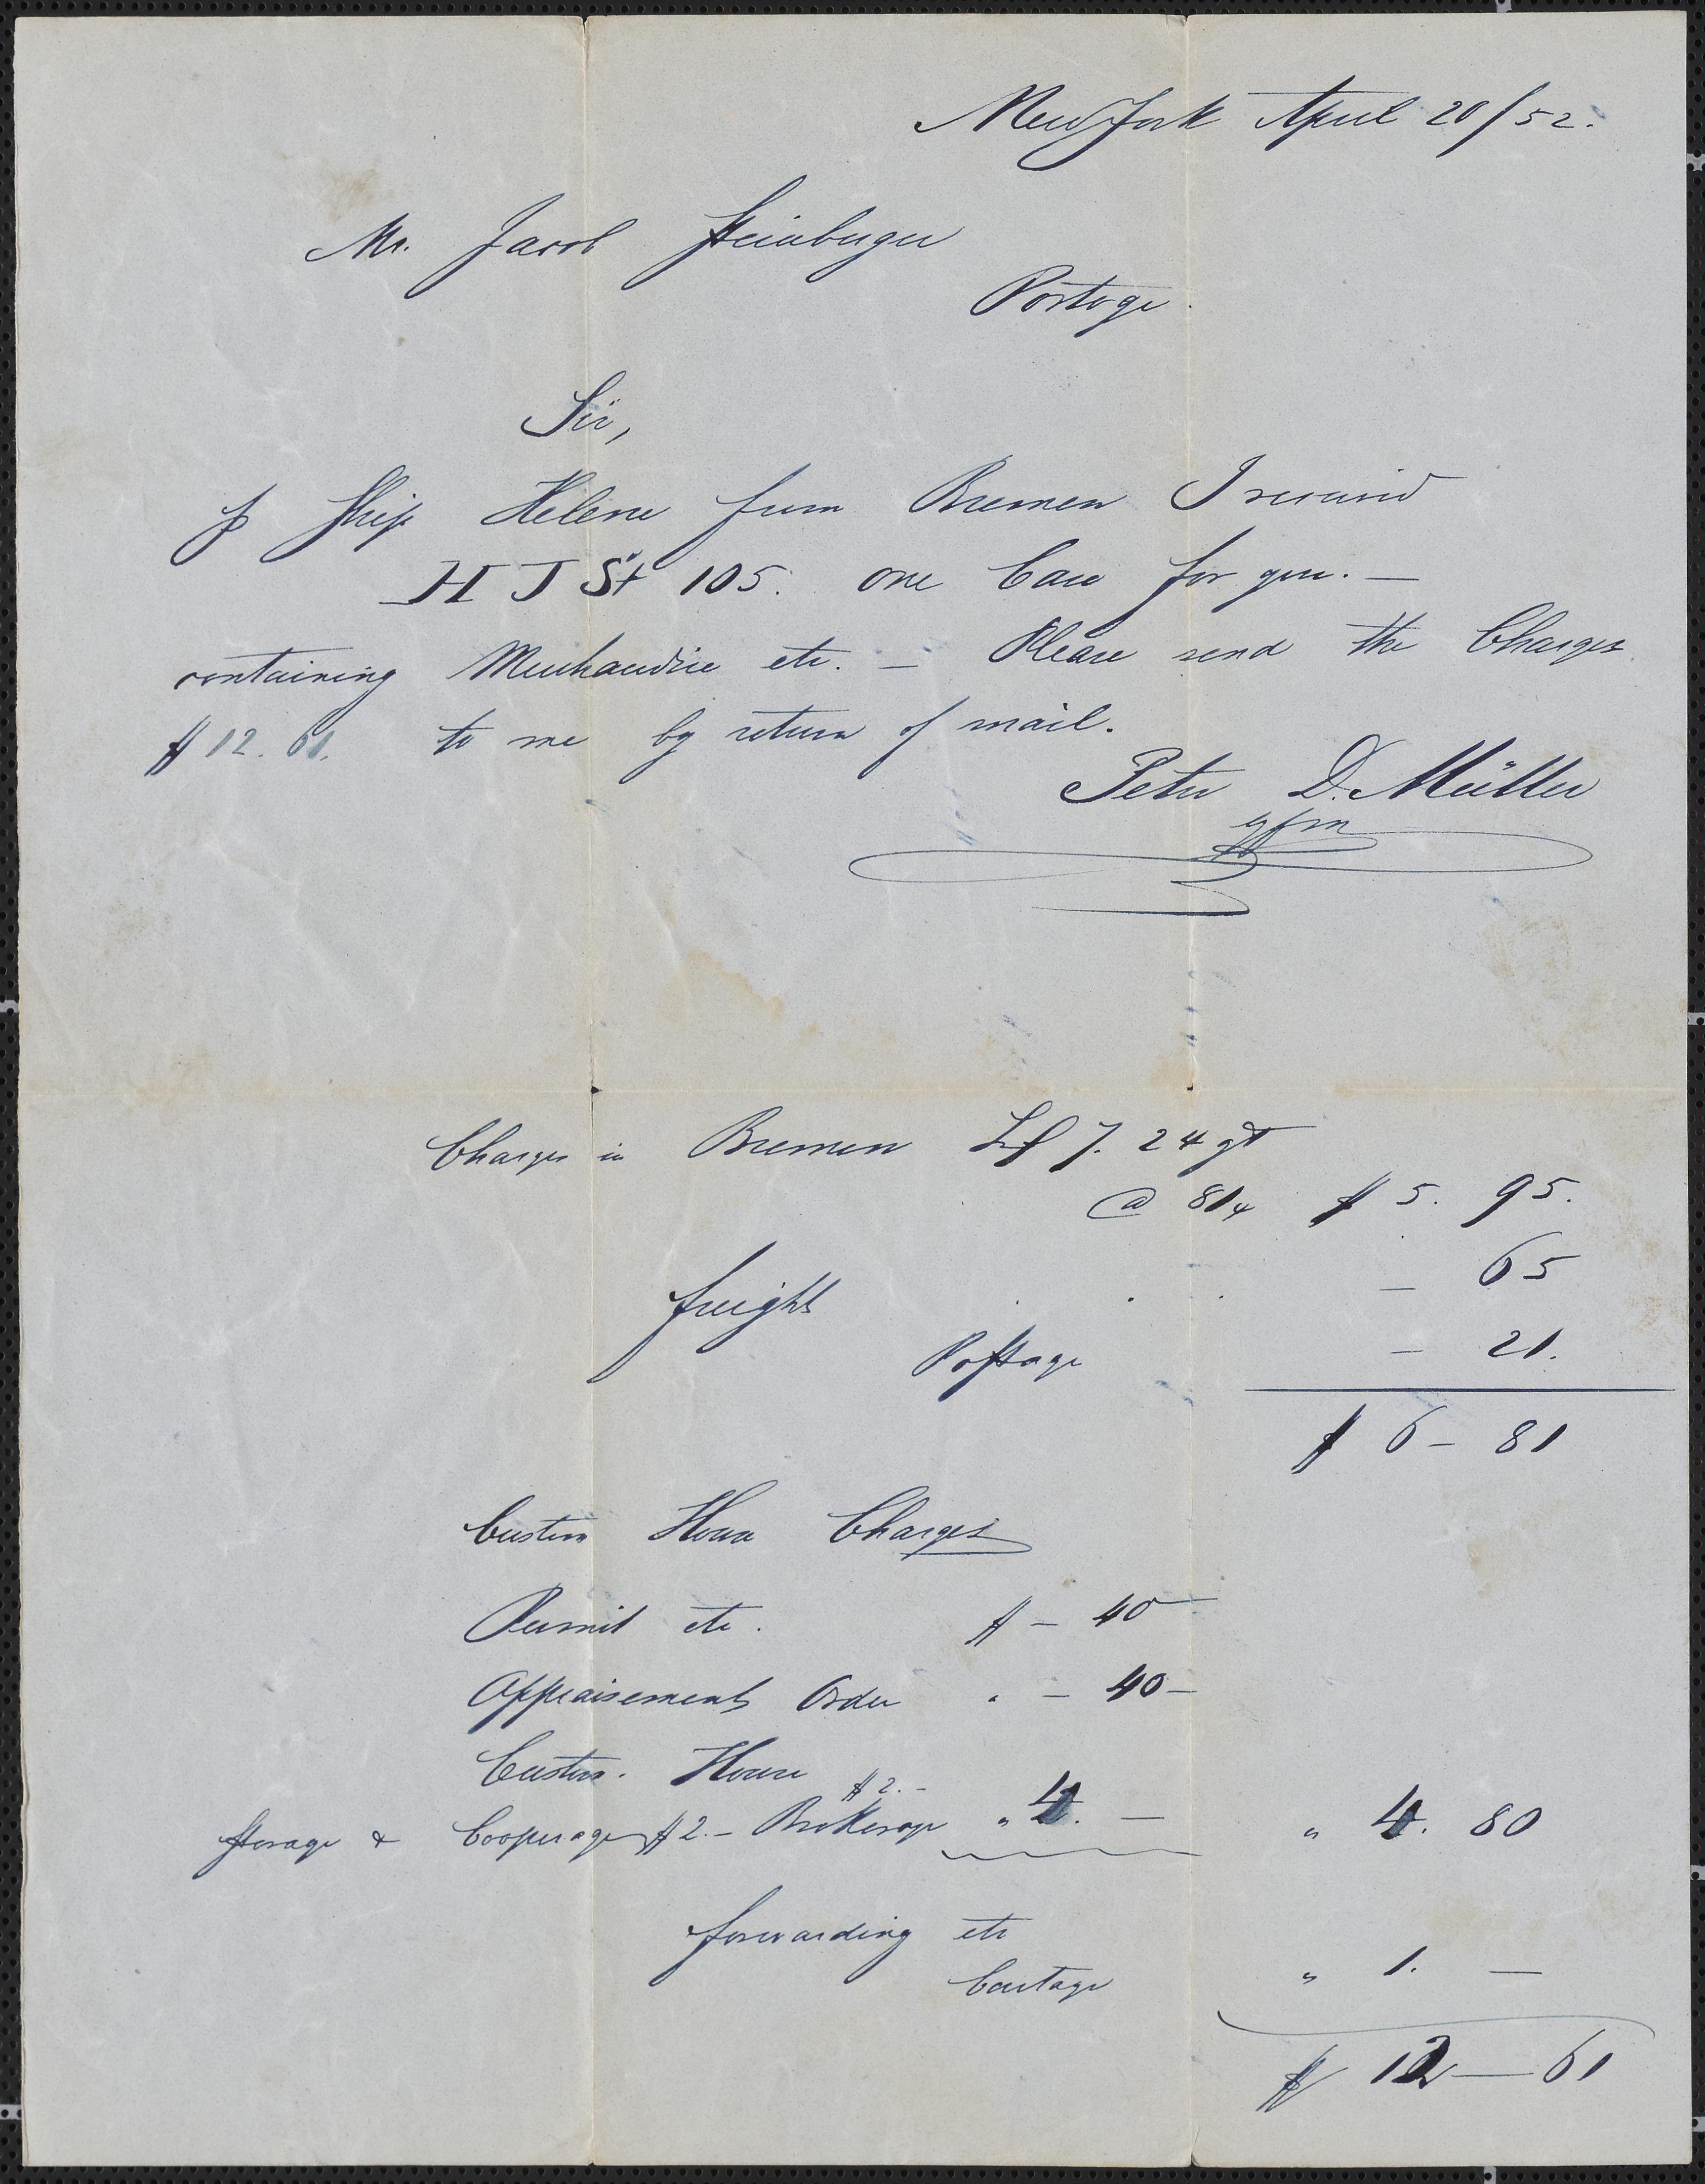 New York April 20/52.
Mr. Jacob Steinberger
Portage.
Sir,
p Ship Helene from Bremen I received
H J St 105. one Case for you. —
containing Merchandise etc. — Please send the Charges
$12.61. to me by return of mail.
Peter D. Müller
Charges in Bremen 7. 24 gt
@ 81¼ $ 5. 95.
freight . . . — 65
Postage — 21.
$ 6 — 81
Custom House Charges
Permit etc. $ — 40 —
Appraisements Order " — 40 —
Custom. House $2. —
Storage & Cooperage $2. — Brokerage " 4. — " 4. 80
forwarding etc
Cartage " 1. —
$ 12 — 61